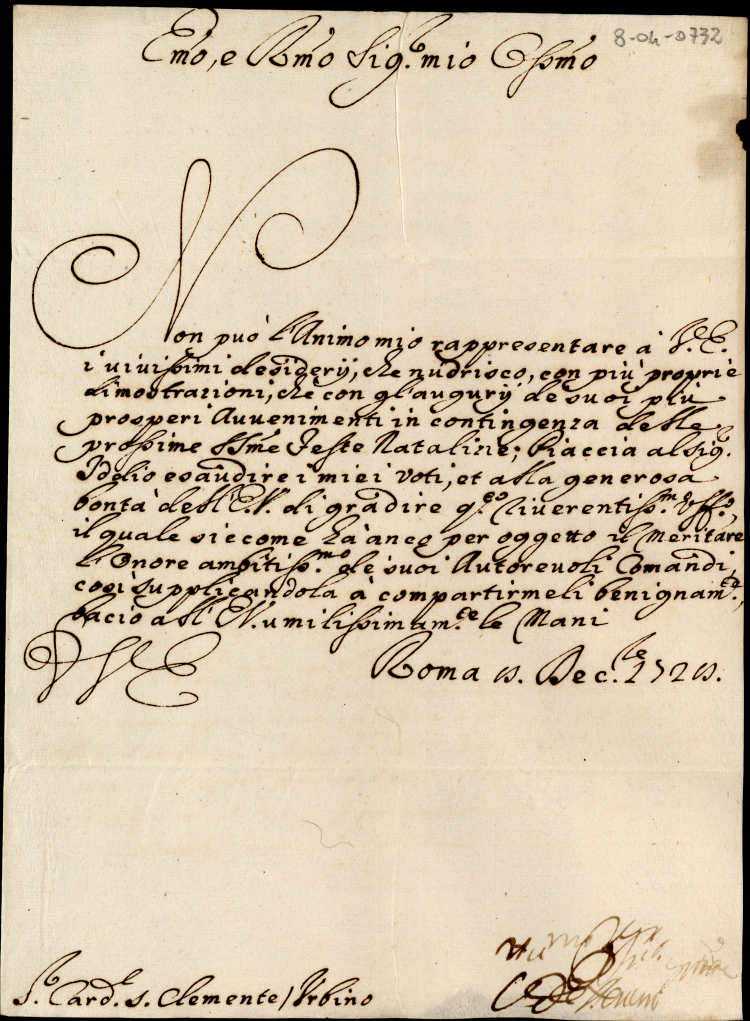 Emo, e Rmo Sig.r mio Ossmo
8-04-0732
Non può l'Animo mio rappresentare à V.E.
i vivissimi desiderij, che nudrisco, con più proprie
dimostrazioni, che con gl'augurij de suoi più
prosperi Avvenimenti in contingenza delle
prossime SSme Feste Nataline; Piaccia al Sig.
Iddio esaudire i miei Voti, et alla generosa
bontà dell'E.V. di gradire q.to riverentiss.mo Uff.o,
il quale siccome hà anco per oggetto il Meritare
l'Onore ambitiss.mo de suoi Autorevoli Comandi,
così supplicandola à compartirmeli benignam.te,
bacio all'E.V. umilissimam.te le Mani
V E
Roma Dec.re
S.r Card.l S. Clemente / Urbino